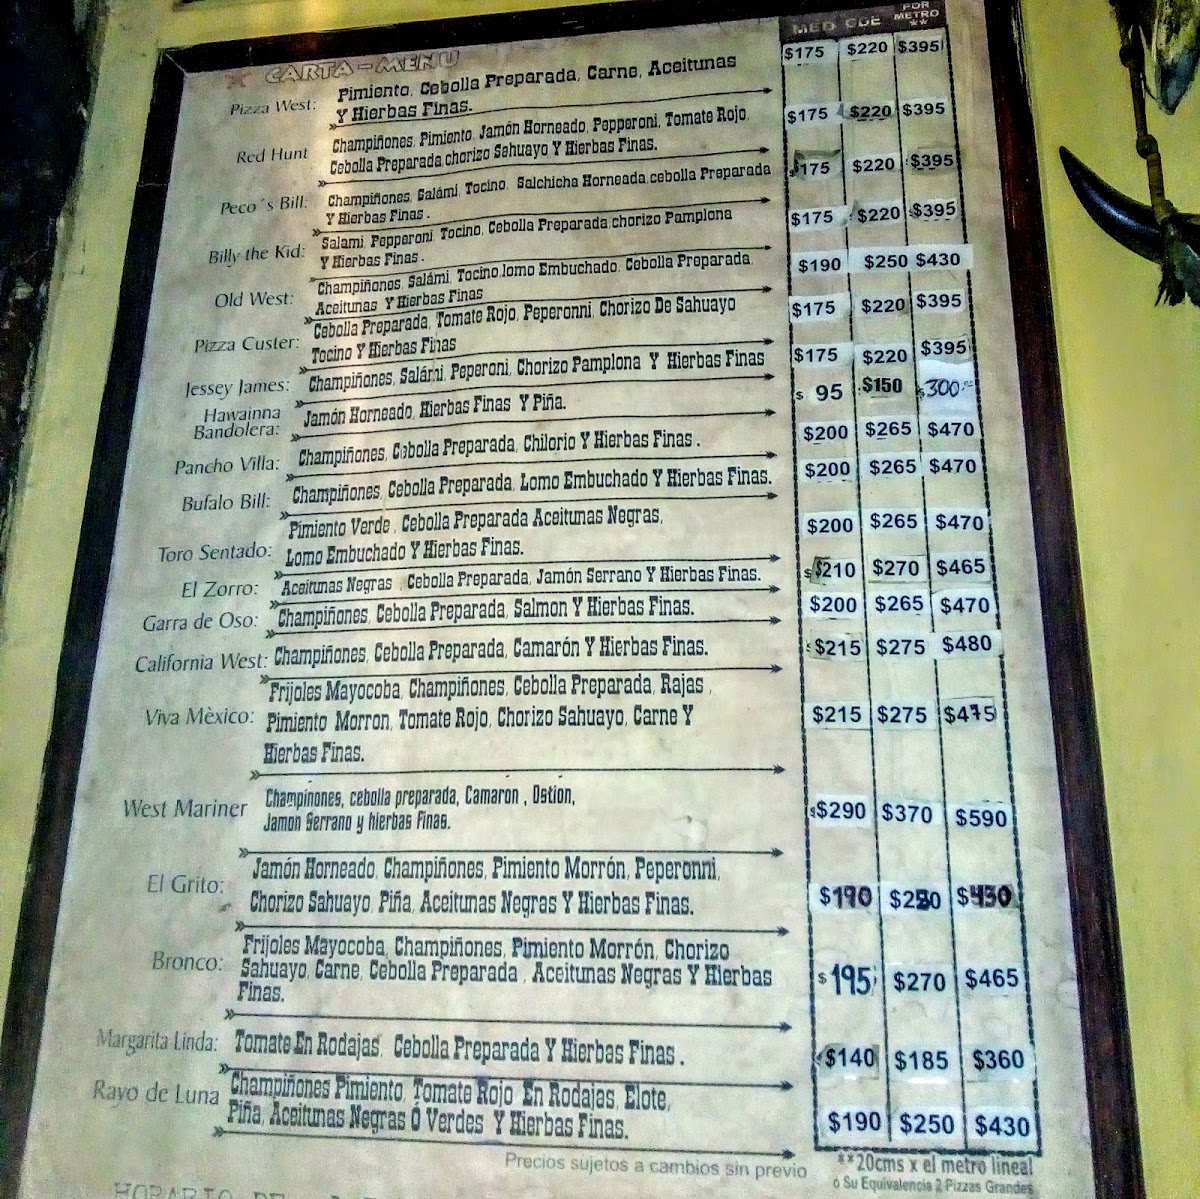 CARTA-MENU MED GDE POR METRO **
Pizza West: Pimiento, Cebolla Preparada, Carne, Aceitunas $175 $220 $395
Y Hierbas Finas.
Red Hunt Champiñones, Pimiento, Jamón Horneado, Pepperoni, Tomate Rojo, $175 $220 $395
Cebolla Preparada,chorizo Sehuayo Y Hierbas Finas.
Peco´s Bill: Champiñones, Salámi, Tocino, Salchicha Horneada,cebolla Preparada $175 $220 $395
Y Hierbas Finas .
Billy the Kid: Salami, Pepperoni, Tocino, Cebolla Preparada,chorizo Pamplona $175 $220 $395
Y Hierbas Finas .
Old West: Champiñones, Salámi, Tocino,lomo Embuchado, Cebolla Preparada, $190 $250 $430
Aceitunas Y Hierbas Finas
Pizza Custer: Cebolla Preparada, Tomate Rojo, Peperonni, Chorizo De Sahuayo $175 $220 $395
Tocino Y Hierbas Finas
Jessey James: Champiñones, Salámi, Peperoni, Chorizo Pamplona Y Hierbas Finas $175 $220 $395
Hawainna
Bandolera: Jamón Horneado, Hierbas Finas Y Piña. $ 95 $150 $300
Pancho Villa: Champiñones, Cebolla Preparada, Chilorio Y Hierbas Finas . $200 $265 $470
Bufalo Bill: Champiñones, Cebolla Preparada, Lomo Embuchado Y Hierbas Finas. $200 $265 $470
Pimiento Verde , Cebolla Preparada Aceitunas Negras,
Toro Sentado: Lomo Embuchado Y Hierbas Finas. $200 $265 $470
El Zorro: Aceitunas Negras , Cebolla Preparada, Jamón Serrano Y Hierbas Finas. $210 $270 $465
Garra de Oso: Champiñones, Cebolla Preparada, Salmon Y Hierbas Finas. $200 $265 $470
California West: Champiñones, Cebolla Preparada, Camarón Y Hierbas Finas. $215 $275 $480
Frijoles Mayocoba, Champiñones, Cebolla Preparada, Rajas ,
Viva Mèxico: Pimiento Morron, Tomate Rojo, Chorizo Sahuayo, Carne Y $215 $275 $475
Hierbas Finas.
West Mariner Champinones, cebolla preparada, Camaron , Ostion, $290 $370 $590
Jamon Serrano y hierbas finas.
El Grito: Jamón Horneado, Champiñones, Pimiento Morrón, Peperonni, $190 $250 $430
Chorizo Sahuayo, Piña, Aceitunas Negras Y Hierbas Finas.
Bronco: Frijoles Mayocoba, Champiñones, Pimiento Morrón, Chorizo $195 $270 $465
Sahuayo, Carne, Cebolla Preparada , Aceitunas Negras Y Hierbas
Finas.
Margarita Linda: Tomate En Rodajas, Cebolla Preparada Y Hierbas Finas . $140 $185 $360
Rayo de Luna Champiñones Pimiento, Tomate Rojo En Rodajas, Elote, $190 $250 $430
Piña, Aceitunas Negras Ó Verdes Y Hierbas Finas.
Precios sujetos a cambios sin previo
**20cms x el metro lineal
ó Su Equivalencia 2 Pizzas Grandes
HORARIO DE